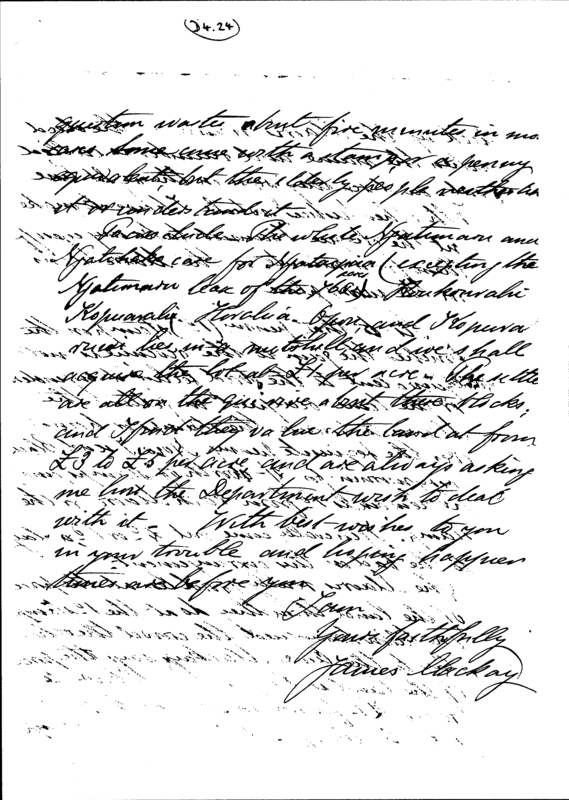 D4.24
question wastes about five minutes in mo
cases some come with a stamp or a penny
equivalent, but the elderly people neither
it or understand it
To conclude The whole Ngatimaru and
care for (excepting the
Ngatimaru lease of the
Kopuarahi Horahia Opou and Kopura
ruwi lies in a nutshell and we shall
acquire the lot at £1 per acre.
are all on the qui vive about these blocks,
and I find they value the land at from
£3 to £5 per acre and are always asking
me how the Department wish to deal
with it – With best wishes to you
in your trouble and hoping happier
times are before you
I am
Yours faithfully
James Mackay